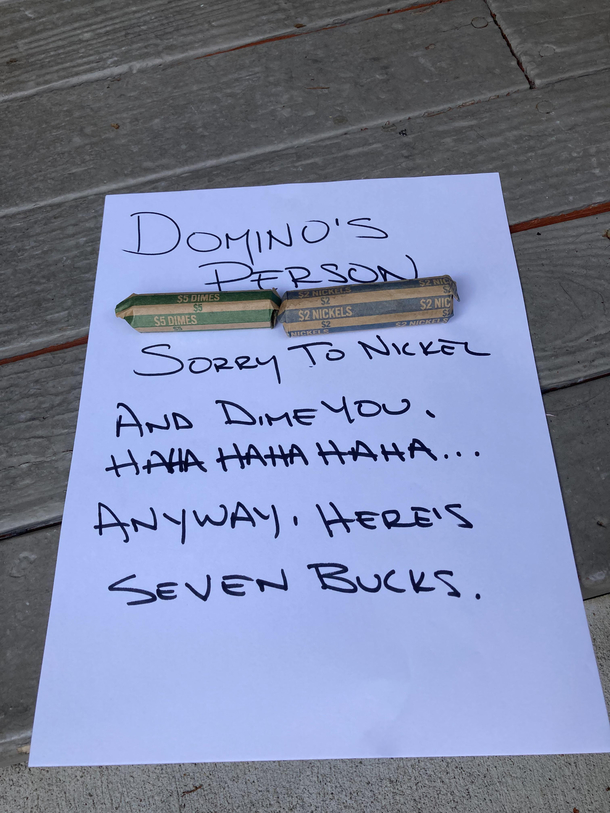 DOMINO'S
PERSON
$5 DIMES
$5
$5 DIMES
$2 NICKELS
$2
$2 NIC
$2 NICKELS
$2
$2 NICKELS
NICKELS
SORRY TO NICKEL
AND DIME YOU.
HAHA HAHA HAHA...
ANYWAY. HERE'S
SEVEN BUCKS.